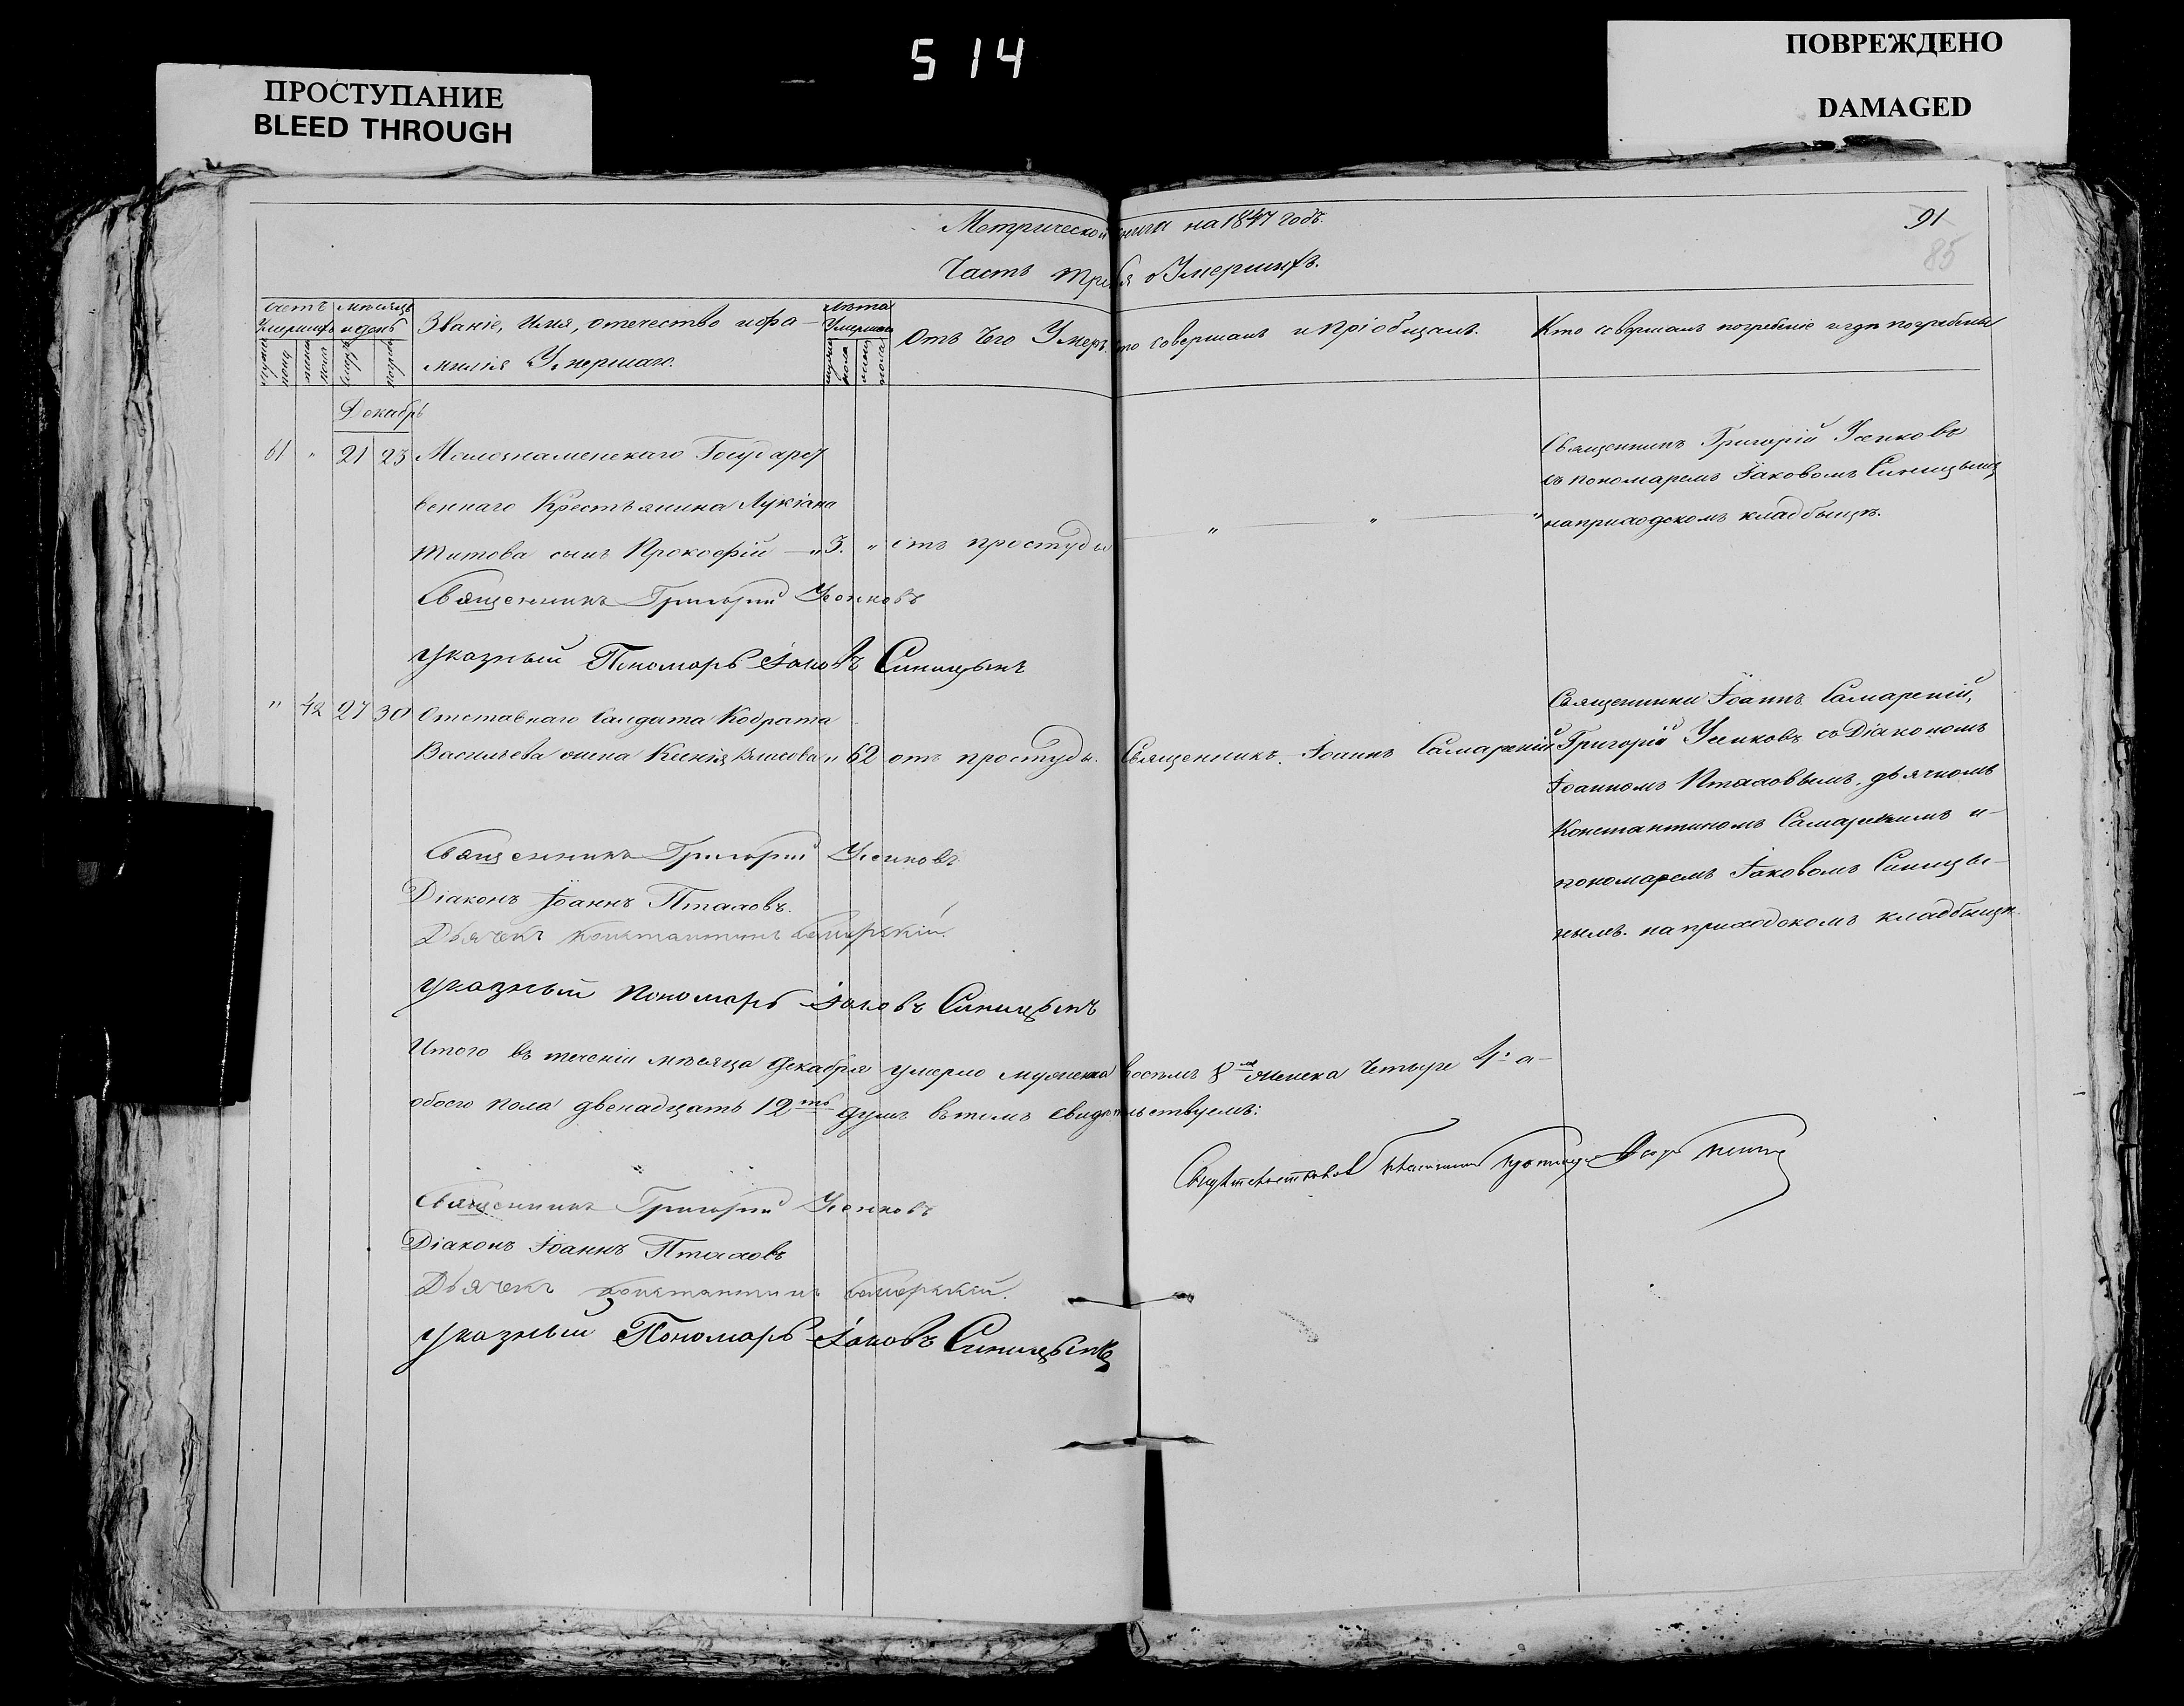 514
ПРОСТУПАНИЕ
BLEED THROUGH
ПОВРЕЖДЕНО
DAMAGED
Метрической книги на 1847 годъ.
91
85
Часть третья о Умершихъ.
Счетъ Умершихъ
мужеска пола
женска пола
Мѣсяцъ и день
смерти
погреб
Званіе, Имя, отечество и фа-
милія Умершаго.
Лѣта Умершаго
мужеска пола
женска пола
Отъ Чего Умеръ.
Кто совершалъ погребеніе и гдѣ погребены
Декабрь
61 " 21 23 Государст
веннаго Крестьянина Лукіана
Титова сынъ Прокофій — " 3. " отъ простуды " " "
Священникъ Григорій Усенковъ
съ пономаремъ Іаковомъ Синицынъ
на приходскомъ кладбищѣ.
Священникъ Григорій Усенковъ
Указный Пономарь Іаковъ Синицынъ
" 42 27 30 Отставнаго Салдата Кодрата
Васильева жена Ксенія Власова " 62 отъ простуды. Священникъ. Іоаннъ Самарскій
Священники Іоаннъ Самарскій,
Григорій Усенковъ со Діакономъ
Іоанномъ Птаховымъ, дьячкомъ
Константиномъ Самарскимъ и
пономаремъ Іаковомъ Синицы-
нымъ. на приходскомъ кладбищѣ.
Священникъ Григорій Усенковъ
Діаконъ Іоаннъ Птаховъ.
Дьячекъ Константинъ Самарскій.
Указный Пономарь Іаковъ Синицынъ
Итого въ теченіи мѣсяца Декабря умерло мужеска восемь 8 женска Четыре 4. а
обоего пола двенадцать 12ть душъ въ темъ свидѣтельствуемъ:
Священникъ Григорій Усенковъ
Діаконъ Іоаннъ Птаховъ
Дьячекъ Константинъ Самарскій.
Указный Пономарь Іаковъ Синицынъ